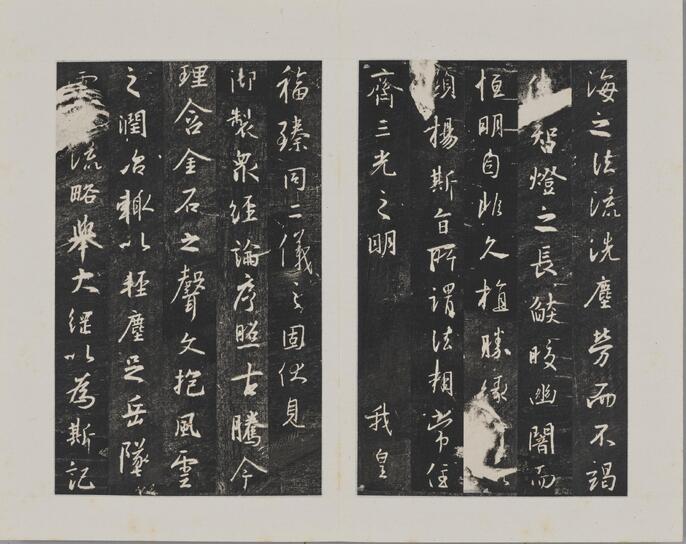 海之法流洗塵勞而不竭
智燈之長燄皎幽闇而
恒明自非久植勝緣
揚斯旨所謂法相常住
齊三光之明 我皇
福臻同二儀之固伏見
御製眾經論序照古騰今
理含金石之聲文抱風雲
之潤治輒以輕塵足岳墜
流略舉大綱以為斯記